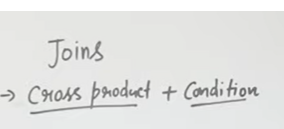 Joins
→ Cross product + Condition